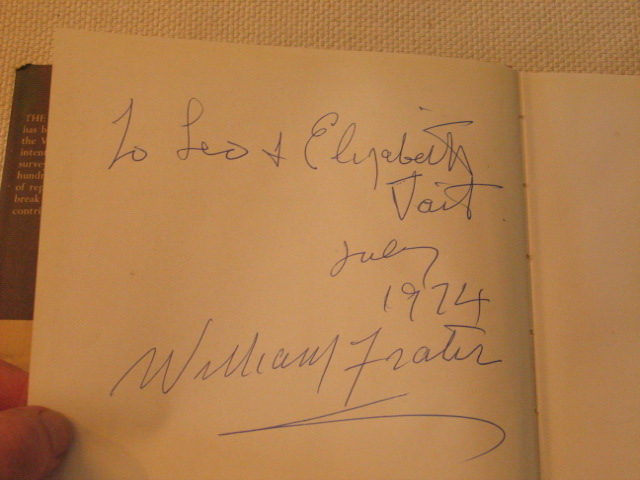 To Leo & Elizabeth
Voit
July
1974
William Frater
THE
has b
the V
inten
survey
hundr
of rep
break
contri